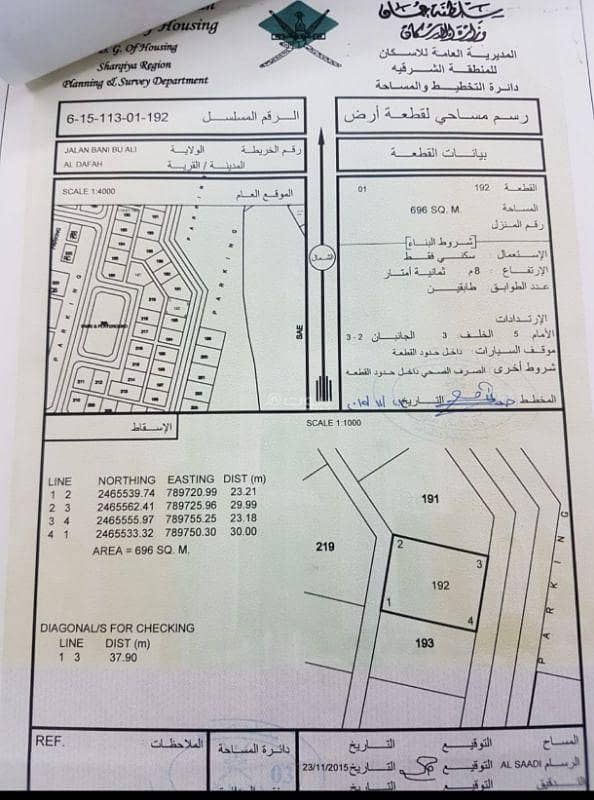 Housing
G. Of Housing
Sharqiya Region
Planning & Survey Department
سلطنة عمان
وزارة الإسكان
المديرية العامة للاسكان
للمنطقة الشرقيه
دائرة التخطيط والمساحة
6-15-113-01-192 الرقم المسلسل
رسم مساحي لقطعة أرض
JALAN BANI BU ALI الولاية رقم الخريطة
AL DAFAH المدينة / القرية
بيانات القطعة
SCALE 1:4000 الموقع العام
PARKING
PARKING
PARKING
SAE
الشمال
القطعة 192 01
المساحة 696 SQ. M.
رقم المنزل
شروط البناء
الإستعمال: سكني فقط
الإرتفاع: 8م ثمانية أمتار
عدد الطوابق طابقين
الإرتدادات
الأمام 5 الخلف 3 الجانبان 2-3
موقف السيارات: داخل حدود القطعة
شروط أخرى: الصرف الصحي داخل حدود القطعه
المخطط التاريخ
الإسقاط
SCALE 1:1000
LINE NORTHING EASTING DIST (m)
1 2 2465539.74 789720.99 23.21
2 3 2465562.41 789725.96 29.99
3 4 2465555.97 789755.25 23.18
4 1 2465533.32 789750.30 30.00
AREA = 696 SQ. M.
DIAGONAL/S FOR CHECKING
LINE DIST (m)
1 3 37.90
191
219
2
3
192
1
4
193
PARKING
REF. الملاحظات
دائرة المساحة
03
المساح التوقيع التاريخ
الرسام AL SAADI التوقيع التاريخ 23/11/2015
التدقيق التوقيع التاريخ